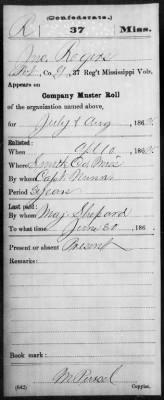 (Confederate.)
R 37 Miss.
Jno. Rogers
Pvt, Co. J, 37 Reg't Mississippi Vols.
Appears on
Company Muster Roll
of the organization named above,
for July & Aug, 1862.
Enlisted:
When Apl 10, 1862.
Where Smith Co Miss
By whom Capt. Nunn
Period 3 years
Last paid:
By whom Maj. Shepard
To what time June 30, 186
Present or absent Present
Remarks:
Book mark:
(642) Copyist.